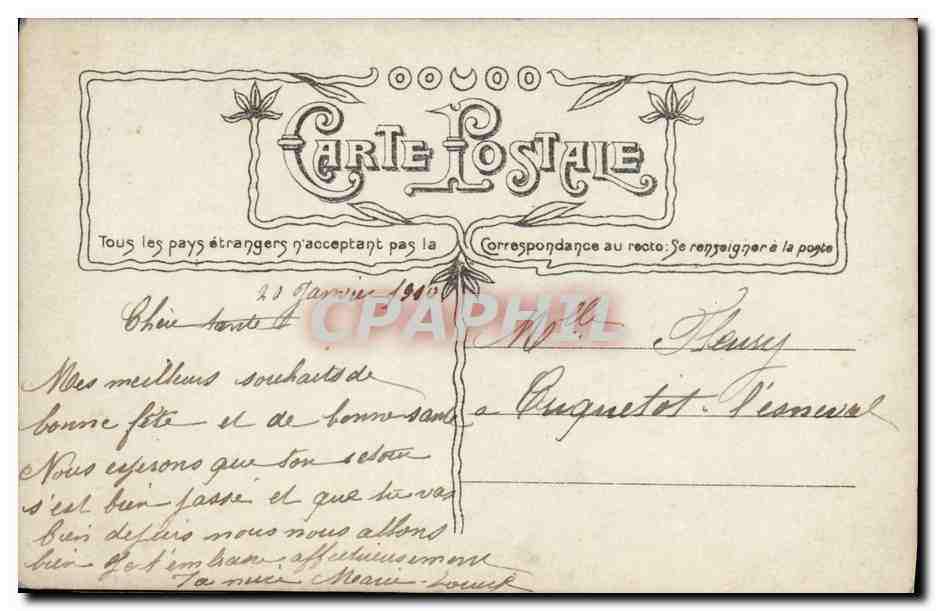 CARTE POSTALE
Tous les pays étrangers n'acceptant pas la Correspondance au recto: Se renseigner à la poste
CPAPHIL
20 Janvier 1910
Chère tante
Mes meilleurs souhaits de
bonne fête et de bonne santé
Nous esperons que ton retour
s'est bien passé et que tu vas
bien depuis nous nous allons
bien Je t'embrasse affectueusement
Ta niece Marie-Louise
Mlle Fleury
a Cuquetot l'esneval